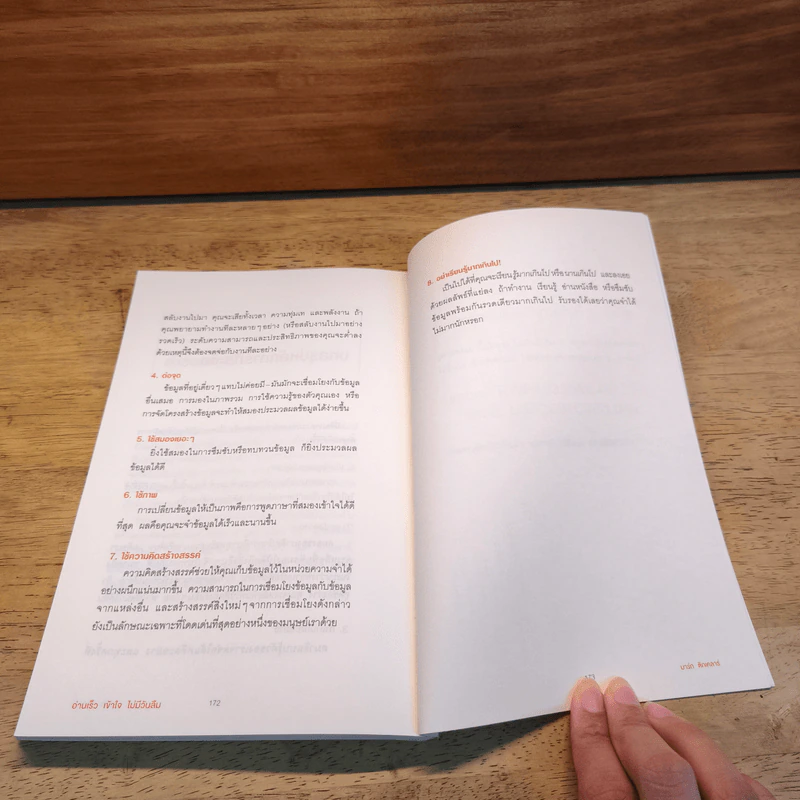 สลับงานไปมา คุณจะเสียทั้งเวลา ความทุ่มเท และพลังงาน ถ้า
คุณพยายามทำงานทีละหลายๆอย่าง (หรือสลับงานไปมาอย่าง
รวดเร็ว) ระดับความสามารถและประสิทธิภาพของคุณจะต่ำลง
ด้วยเหตุนี้จึงต้องจดจ่อกับงานทีละอย่าง
4. ต่อจุด
ข้อมูลที่อยู่เดี่ยวๆแทบไม่ค่อยมี – มันมักจะเชื่อมโยงกับข้อมูล
อื่นเสมอ การมองในภาพรวม การใช้ความรู้ของตัวคุณเอง หรือ
การจัดโครงสร้างข้อมูลจะทำให้สมองประมวลผลข้อมูลได้ง่ายขึ้น
5. ใช้สมองเยอะๆ
ยิ่งใช้สมองในการซึมซับหรือทบทวนข้อมูล ก็ยิ่งประมวลผล
ข้อมูลได้ดี
6. ใช้ภาพ
การเปลี่ยนข้อมูลให้เป็นภาพคือการพูดภาษาที่สมองเข้าใจได้ดี
ที่สุด ผลคือคุณจะจำข้อมูลได้เร็วและนานขึ้น
7. ใช้ความคิดสร้างสรรค์
ความคิดสร้างสรรค์ช่วยให้คุณเก็บข้อมูลไว้ในหน่วยความจำได้
อย่างผนึกแน่นมากขึ้น ความสามารถในการเชื่อมโยงข้อมูลกับข้อมูล
จากแหล่งอื่น และสร้างสรรค์สิ่งใหม่ๆจากการเชื่อมโยงดังกล่าว
ยังเป็นลักษณะเฉพาะที่โดดเด่นที่สุดอย่างหนึ่งของมนุษย์เราด้วย
อ่านเร็ว เข้าใจ ไม่มีวันลืม 172
8. อย่าเรียนรู้มากเกินไป!
เป็นไปได้ที่คุณจะเรียนรู้มากเกินไปหรือนานเกินไป และลงเอย
ด้วยผลลัพธ์ที่แย่ลง ถ้าทำงาน เรียนรู้ อ่านหนังสือ หรือซึมซับ
ข้อมูลพร้อมกันรวดเดียวมากเกินไป รับรองได้เลยว่าคุณจำได้
ไม่มากนักหรอก